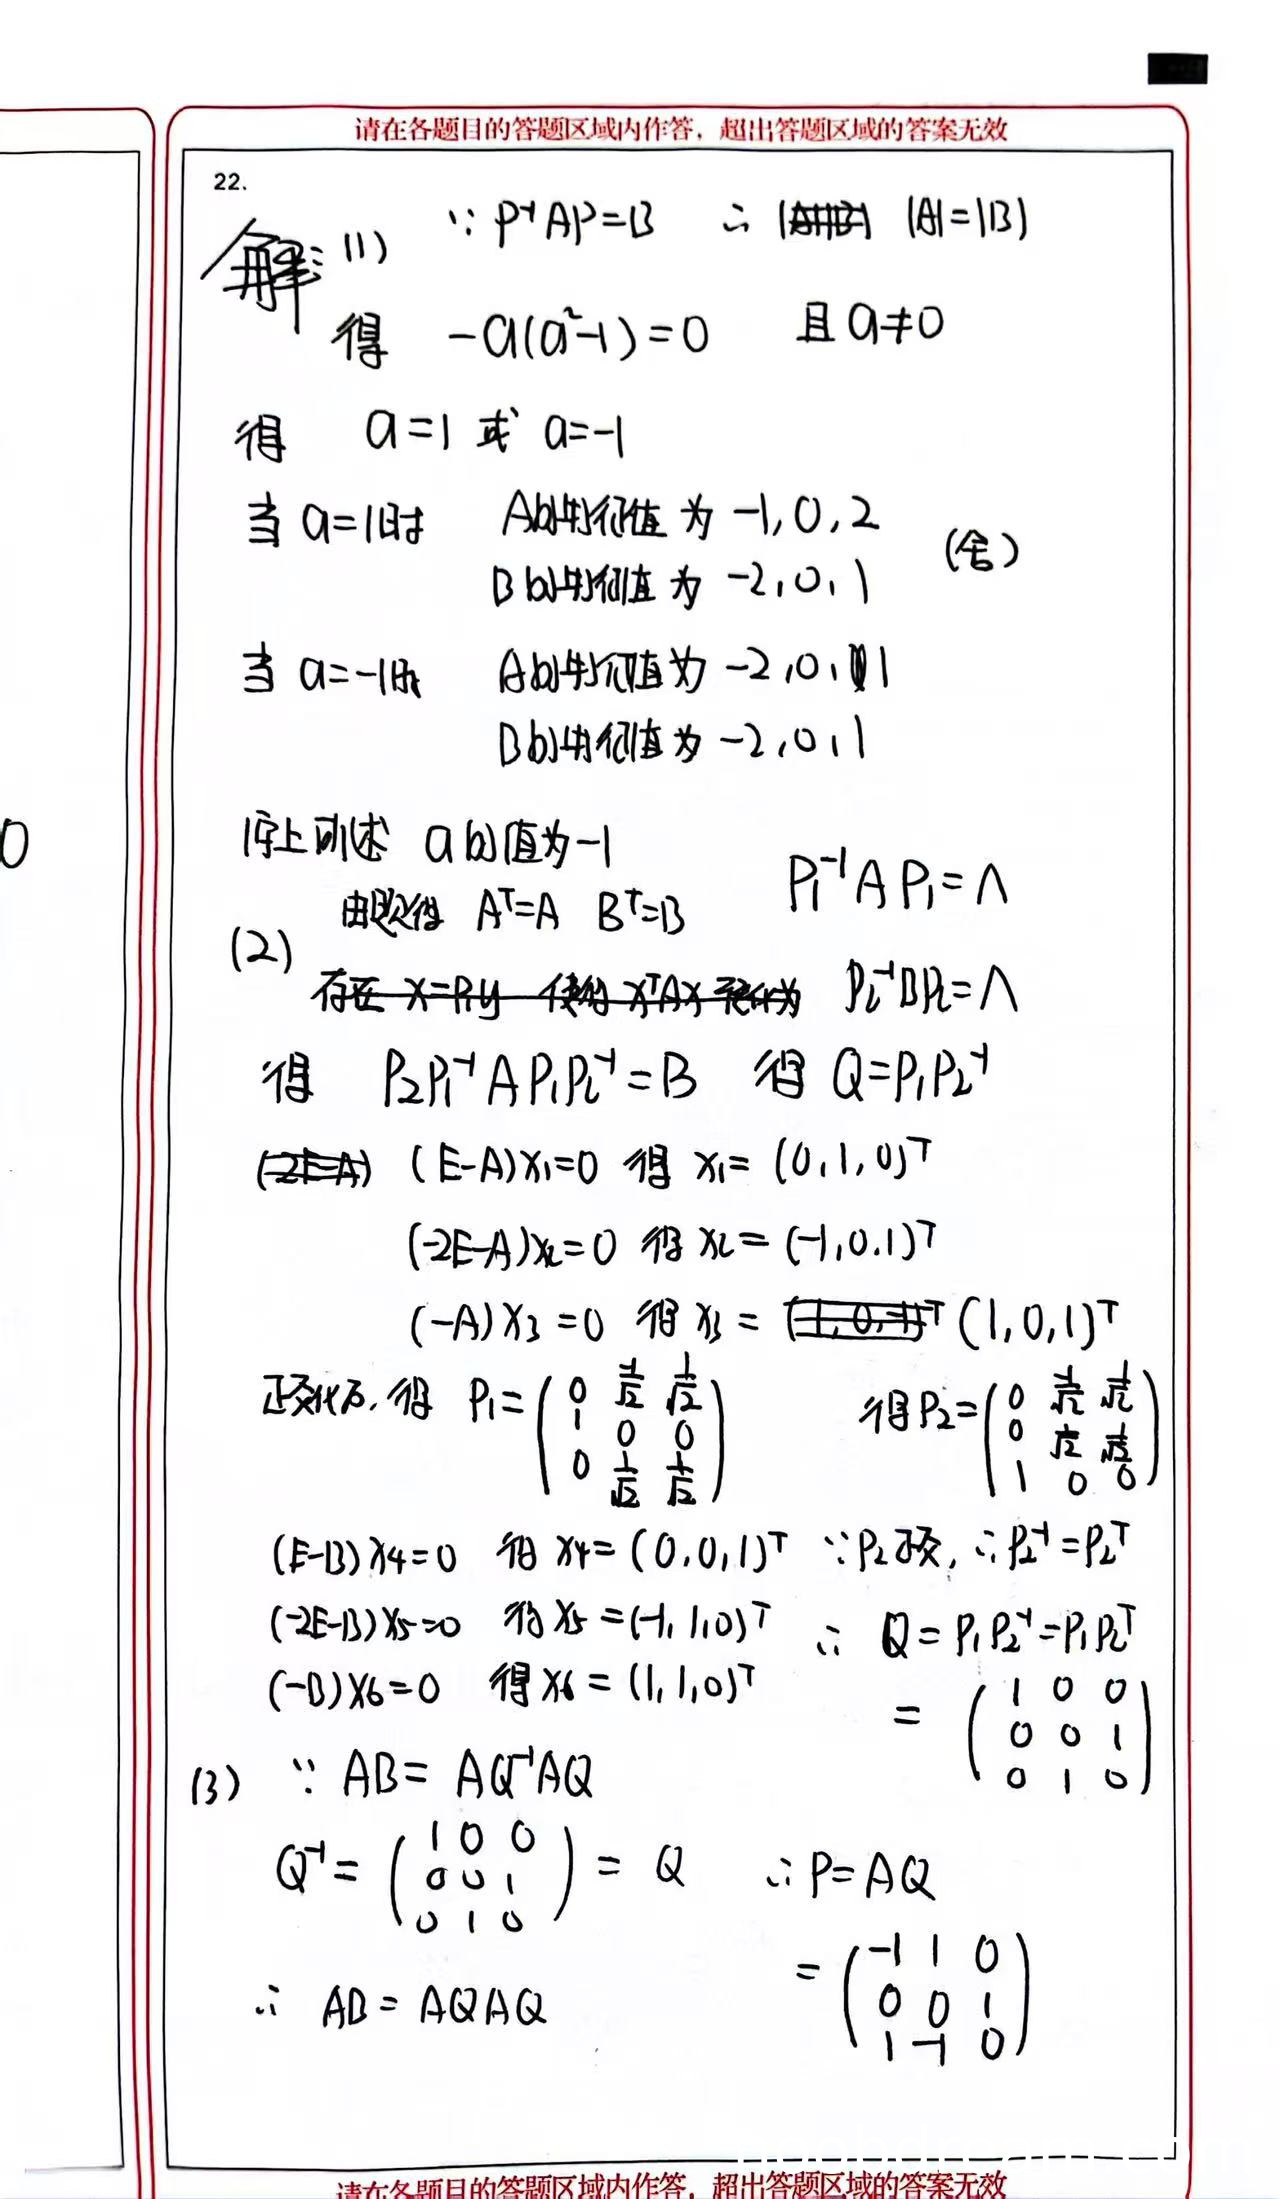 请在各题目的答题区域内作答，超出答题区域的答案无效
22.
解：(1) ∵ P⁻¹AP=B ∴ |A|=|B|
得 -a(a²-1)=0 且 a≠0
得 a=1 或 a=-1
当 a=1时 A的特征值为 -1,0,2
B的特征值为 -2,0,1 (舍)
当 a=-1时 A的特征值为 -2,0,1
B的特征值为 -2,0,1
综上所述 a的值为-1
(2) 由题得 Aᵀ=A Bᵀ=B P₁⁻¹AP₁=Λ
存在 x=P₁y 使得 xᵀAx P₂⁻¹BP₂=Λ
得 P₂P₁⁻¹AP₁P₂⁻¹=B 得 Q=P₁P₂⁻¹
(-2E-A) (E-A)x₁=0 得 x₁=(0,1,0)ᵀ
(-2E-A)x₂=0 得 x₂=(-1,0,1)ᵀ
(-A)x₃=0 得 x₃= (1,0,1)ᵀ
正交化后,得 P₁=(0 -1/√2 1/√2 得P₂=(0 -1/√2 1/√2
1 0 0 0 1/√2 1/√2
0 1/√2 1/√2) 1 0 0)
(E-B)x₄=0 得 x₄=(0,0,1)ᵀ ∵P₂正交,∴P₂⁻¹=P₂ᵀ
(-2E-B)x₅=0 得 x₅=(-1,1,0)ᵀ ∴ Q=P₁P₂⁻¹=P₁P₂ᵀ
(-B)x₆=0 得 x₆=(1,1,0)ᵀ
=(1 0 0
0 0 1
0 1 0)
(3) ∵ AB=AQ⁻¹AQ
Q⁻¹=(1 0 0
0 0 1
0 1 0) = Q ∴P=AQ
=(-1 1 0
0 0 1
1 -1 0)
∴ AB=AQAQ
请在各题目的答题区域内作答，超出答题区域的答案无效
0